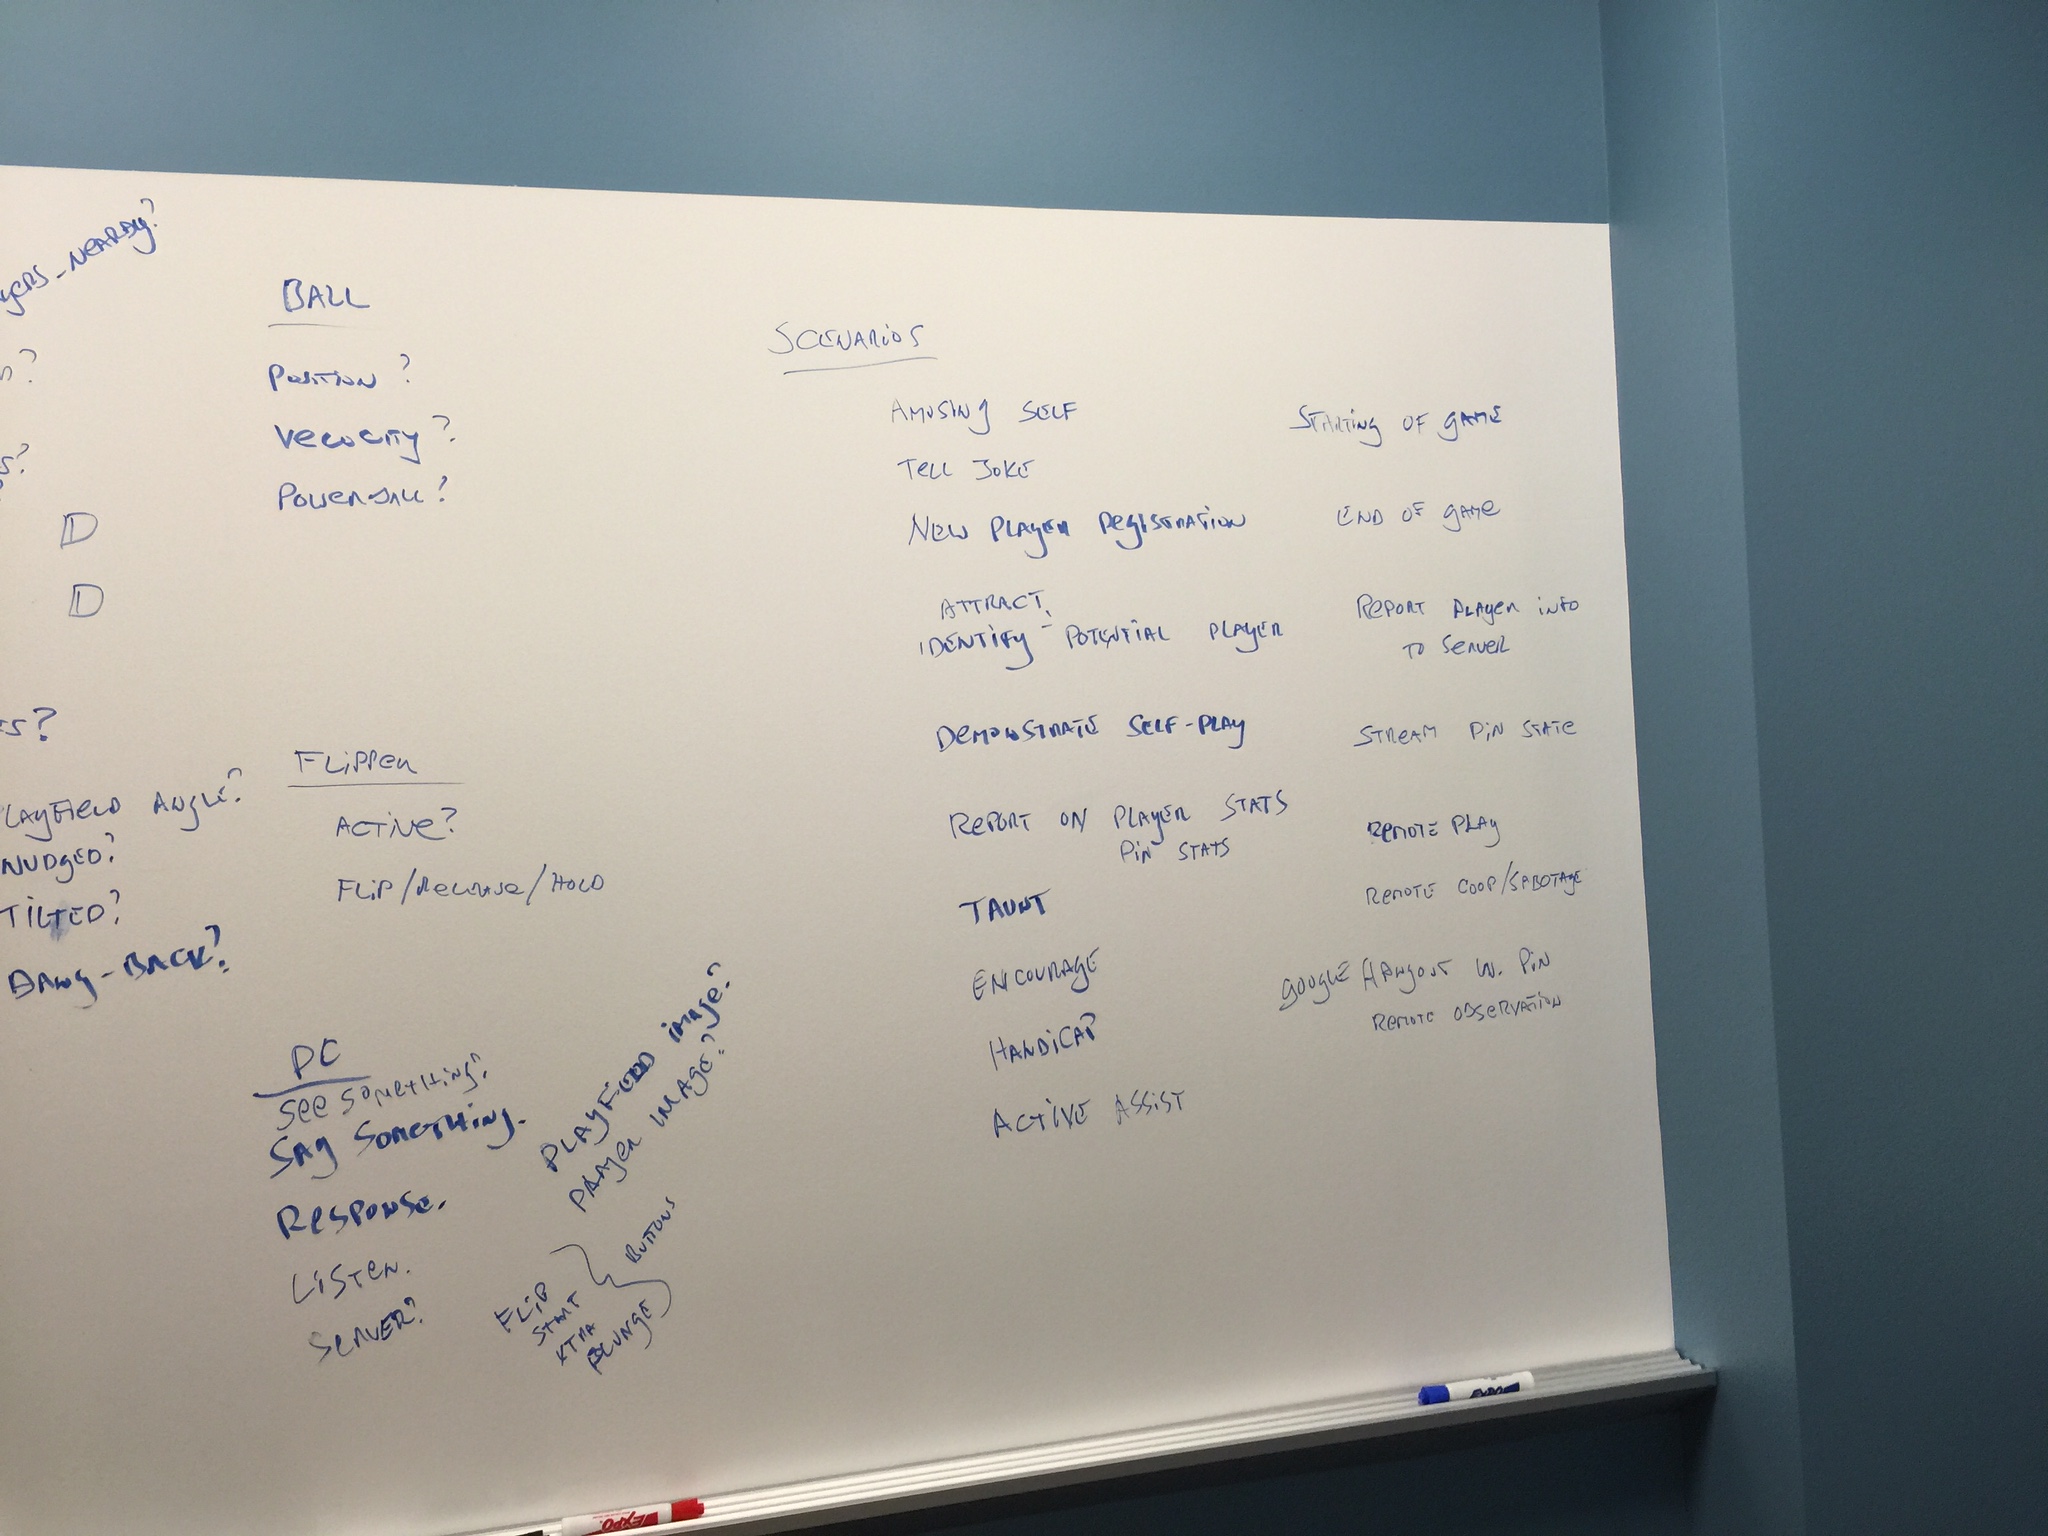 NEARBY?
D
D
ANGLE?
NUDGED?
TILTED?
DANG-BACK?
BALL
POSITION?
VELOCITY?
POWERBALL?
FLIPPER
ACTIVE?
FLIP/RELEASE/HOLD
PC
SEE SOMETHING?
SAY SOMETHING.
RESPONSE.
LISTEN.
SERVER?
PLAYFIELD IMAGE?
PLAYER IMAGE?
FLIP
START
XTRA
PLUNGE
BUTTONS
SCENARIOS
AMUSING SELF
TELL JOKE
NEW PLAYER REGISTRATION
ATTRACT,
IDENTIFY - POTENTIAL PLAYER
DEMONSTRATE SELF-PLAY
REPORT ON PLAYER STATS
PIN STATS
TAUNT
ENCOURAGE
HANDICAP
ACTIVE ASSIST
STARTING OF GAME
END OF GAME
REPORT PLAYER INFO
TO SERVER
STREAM PIN STATE
REMOTE PLAY
REMOTE COOP/SABOTAGE
GOOGLE HANGOUT W. PIN
REMOTE OBSERVATION
EXPO
EXPO